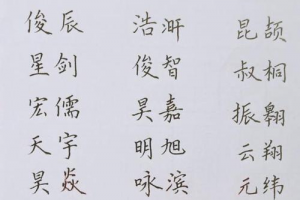 俊辰 浩汧 昆颉
星剑 俊智 叔桐
宏儒 昊嘉 振翱
天宇 明旭 云翔
昊焱 咏滨 元纬